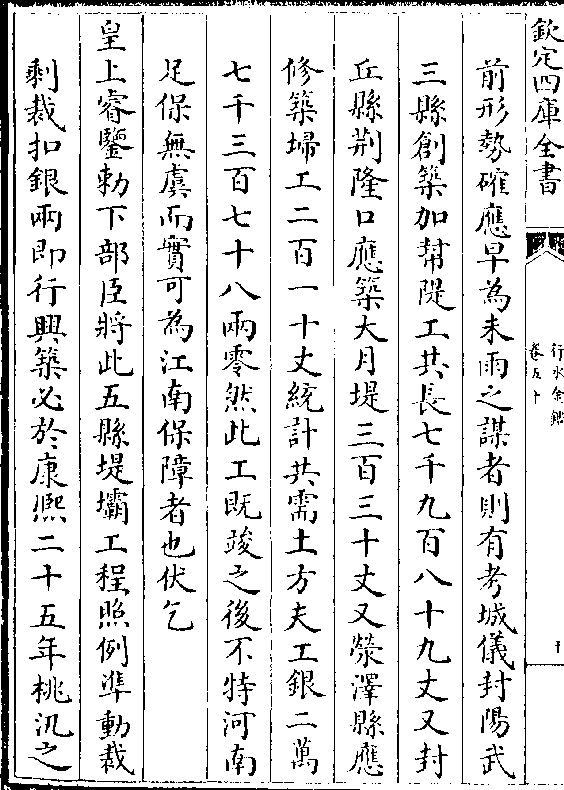 欽定四庫全書
行水金鑑
卷五十
十
前形勢確應早為未雨之謀者則有考城儀封陽武
三縣創築加幇隄工共長七千九百八十九丈又封
丘縣荆隆口應築大月堤三百三十丈又滎澤縣應
修築埽工二百一十丈統計共需土方夫工銀二萬
七千三百七十八兩零然此工既竣之後不特河南
足保無虞而實可為江南保障者也伏乞
皇上睿鑒勅下部臣將此五縣堤壩工程照例準動裁
剩裁扣銀兩即行興築必於康熈二十五年桃汛之